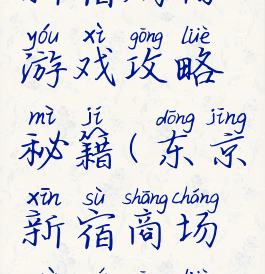 yóu xì gōng lüè
游戏攻略
mì jí dōng jīng
秘籍(东京
xīn sù shāng cháng
新宿商场